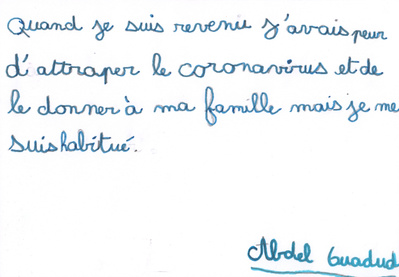 Quand je suis revenu j'avais peur
d'attraper le coronavirus et de
le donner à ma famille mais je me
suis habitué.
Abdel Guadud